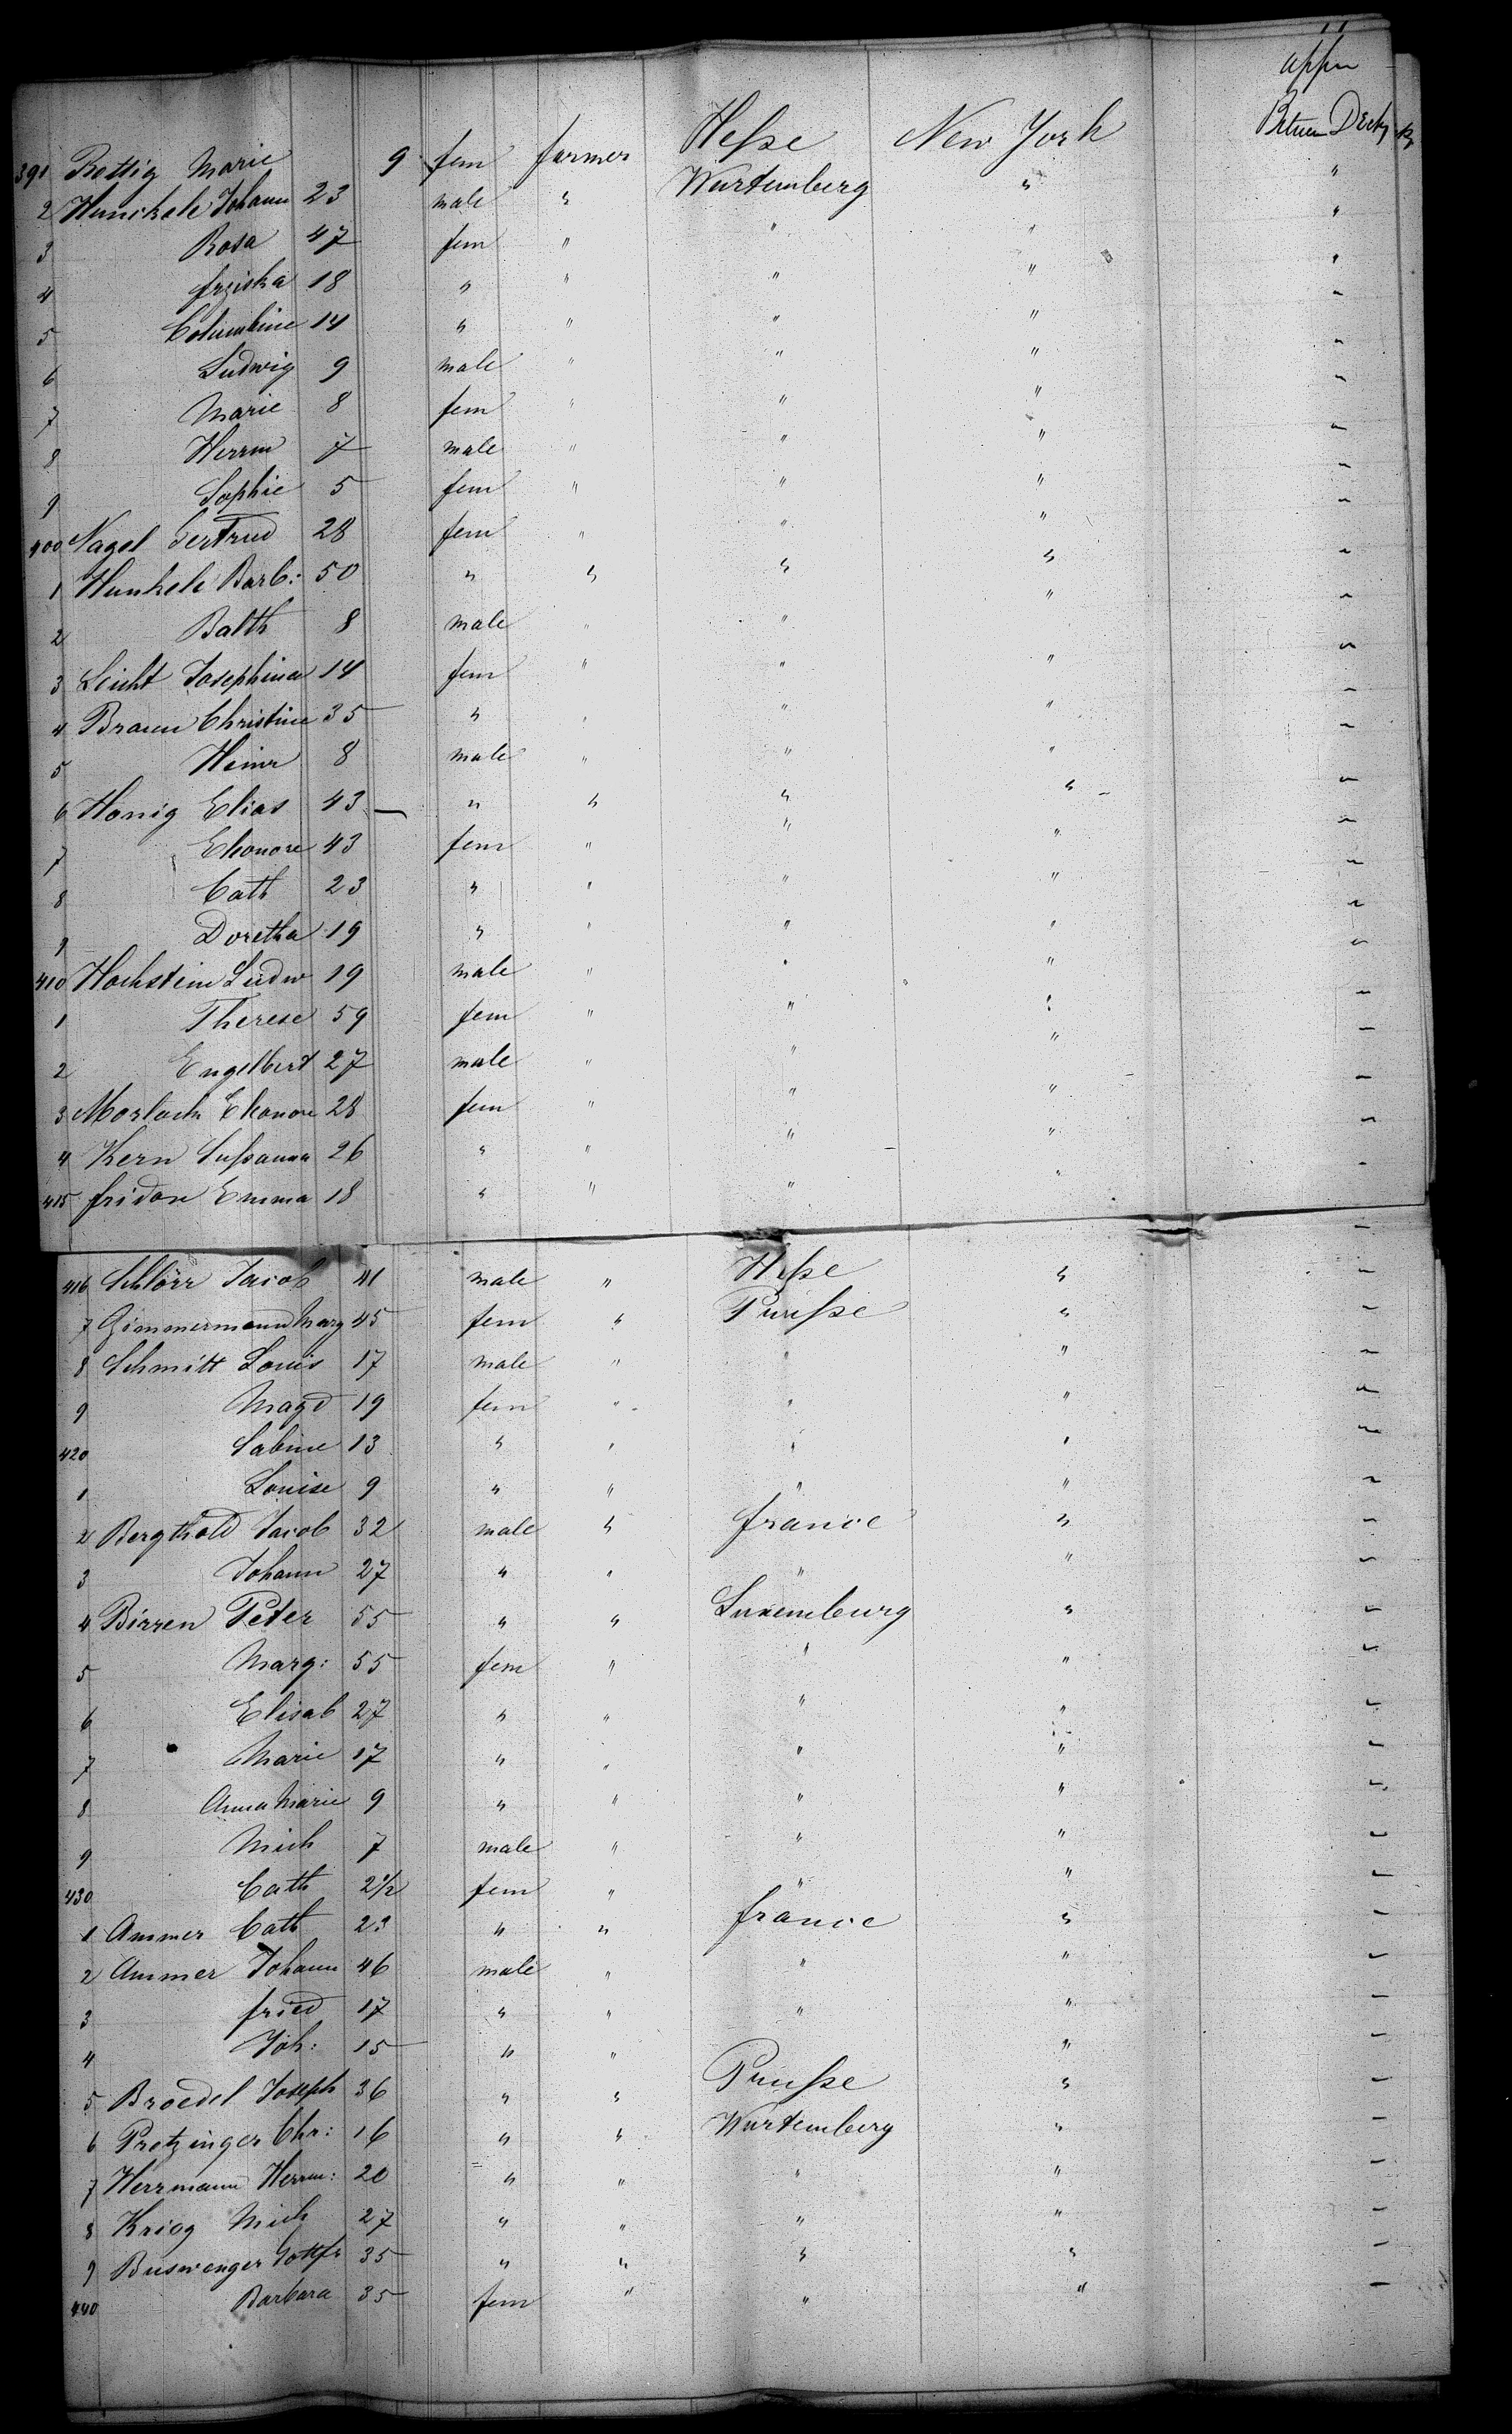 11
upper
Between Decks
391 Rettig Marie 9 fem farmer Heſse New York
2 Hunckele Johann 23 male " Wurtemberg " "
3 Rosa 47 fem " " " "
4 frziska 18 " " " " "
5 Columbine 14 " " " " "
6 Ludwig 9 male " " " "
7 Marie 8 fem " " " "
8 Herrm 7 male " " " "
9 Sophie 5 fem " " " "
400 Nagel Gertrud 28 fem " " " "
1 Hunkele Barb: 50 " " " " "
2 Balth 8 male " " " "
3 Licht Josephina 14 fem " " " "
4 Braun Christine 35 " " " " "
5 Heinr 8 male " " " "
6 Honig Elias 43 " " " " "
7 Eleonore 43 fem " " " "
8 Cath 23 " " " " "
9 Doretha 19 " " " " "
410 Hochstein Ludw 19 male " " " "
1 Therese 59 fem " " " "
2 Engelbert 27 male " " " "
3 Morlock Eleonore 28 fem " " " "
4 Kern Suſsanna 26 " " " " "
415 fridon Emma 18 " " " " "
416 Schlörr Jacob 41 male " Heſse " "
7 Zimmermann Marg 45 fem " Pruſse " "
8 Schmitt Louis 17 male " " " "
9 Magd 19 fem " " " "
420 Sabine 13 " " " " "
1 Louise 9 " " " " "
2 Bergthold Jacob 32 male " france " "
3 Johann 27 " " " " "
4 Birren Peter 55 " " Luxemburg " "
5 Marg: 55 fem " " " "
6 Elisab 27 " " " " "
7 Marie 17 " " " " "
8 Anna Marie 9 " " " " "
9 Mich 7 male " " " "
430 Cath 2 1/2 fem " " " "
1 Ammer Cath 23 " " france " "
2 Ammer Johann 46 male " " " "
3 fried 17 " " " " "
4 Joh: 15 " " " " "
5 Broedel Joseph 36 " " Pruſse " "
6 Pretzinger Chr: 16 " " Wurtemberg " "
7 Herrmann Herrm: 20 " " " " "
8 Krieg Mich 27 " " " " "
9 Biswenger Gottfr 35 " " " " "
440 Barbara 35 fem " " " "